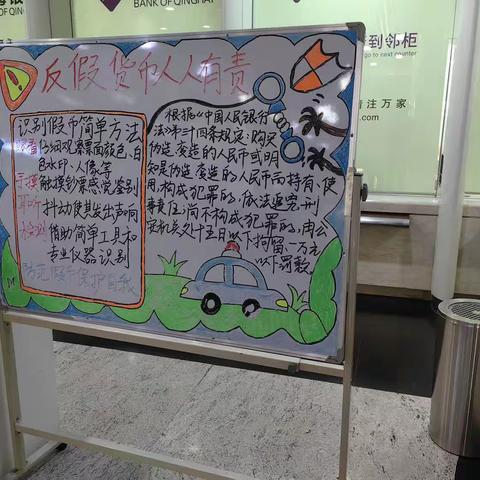 BANK OF QINGHAI
到邻柜
go to next counter
注万家
反假货币人人有责
识别假币简单方法
眼看 仔细观察票面颜色、白
色水印、人像等
手摸 触摸钞票感觉鉴别
耳听 抖动使其发出声响
检测 借助简单工具和
专业仪器识别
防范假币保护自我
根据《中国人民银行
法》第三十四条规定：购买
伪造、变造的人民币或明
知是伪造、变造的人民币而持有、使
用，构成犯罪的，依法追究刑
事责任；尚不构成犯罪的，由公
安机关处十五日以下拘留、一万元
以下罚款。